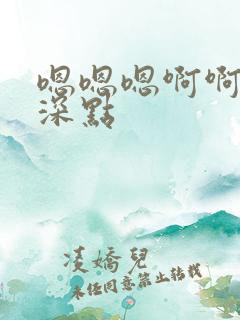 嗯嗯嗯啊啊
深點
凌嬌兒
未经同意禁止转载